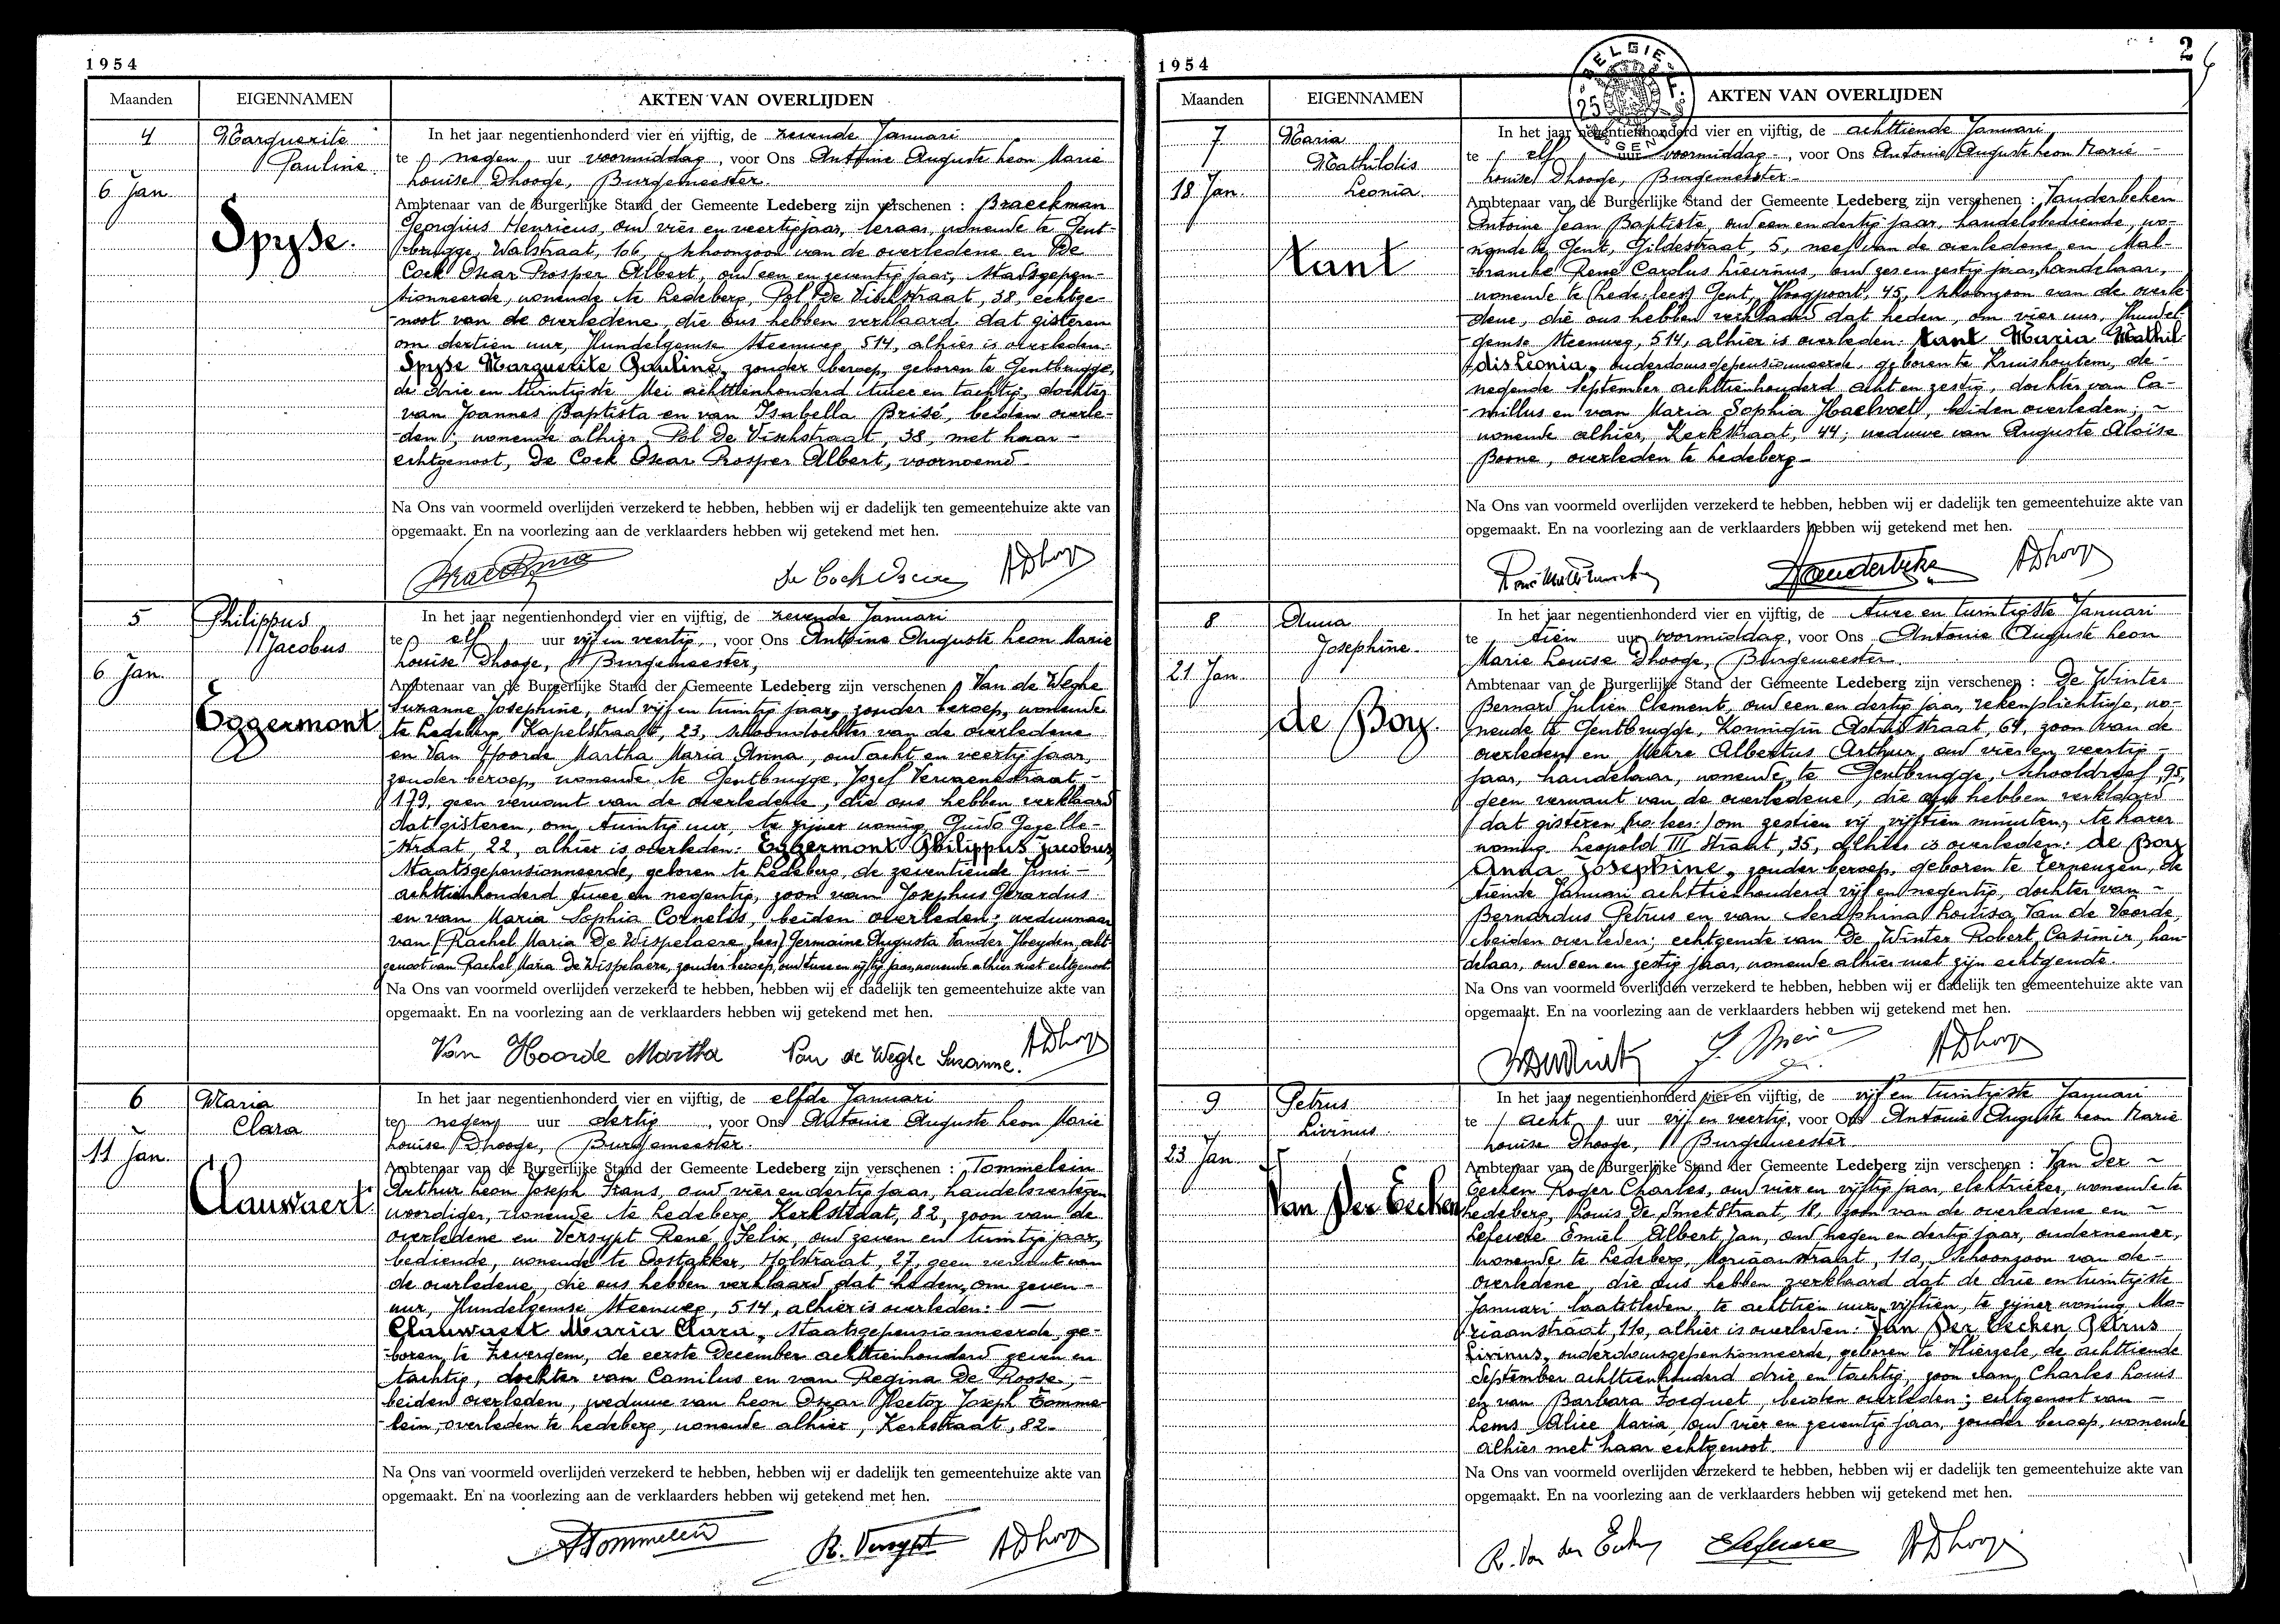 1954
Maanden EIGENNAMEN AKTEN VAN OVERLIJDEN
4
6 Jan.
Marguerite
Pauline
Spyse.
In het jaar negentienhonderd vier en vijftig, de zevende Januari
te negen uur voormiddag, voor Ons Antoine Auguste Leon Marie
Louise Dhooge, Burgemeester.
Ambtenaar van de Burgerlijke Stand der Gemeente Ledeberg zijn verschenen : Braeckman
Georgius Henricus, oud vier en veertig jaar, leraar, wonende te Gent-
brugge, Walstraat, 106, schoonzoon van de overledene en De
Cock Oscar Prosper Albert, oud een en zeventig jaar, Stadsgepen-
sionneerde, wonende te Ledeberg, Pol De Vischstraat, 38, echtge-
noot van de overledene, die ons hebben verklaard dat gisteren
om dertien uur, Hundelgemse Steenweg, 514, alhier is overleden:
Spyse Marguerite Pauline, zonder beroep, geboren te Gentbrugge,
de drie en twintigste Mei achttienhonderd twee en tachtig, dochter
van Joannes Baptista en van Isabella Brisé, beiden overle-
den; wonende alhier, Pol De Vischstraat, 38, met haar
echtgenoot, De Cock Oscar Prosper Albert, voornoemd
Na Ons van voormeld overlijden verzekerd te hebben, hebben wij er dadelijk ten gemeentehuize akte van
opgemaakt. En na voorlezing aan de verklaarders hebben wij getekend met hen.
De Cock Oscar ADhooge
5
6 Jan.
Philippus
Jacobus
Eggermont
In het jaar negentienhonderd vier en vijftig, de zevende Januari
te elf uur vijf en veertig, voor Ons Antoine Auguste Leon Marie
Louise Dhooge, Burgemeester,
Ambtenaar van de Burgerlijke Stand der Gemeente Ledeberg zijn verschenen Van de Weghe
Suzanne Josephine, oud vijf en twintig jaar, zonder beroep, wonende
te Ledeberg, Kapelstraat, 23, schoondochter van de overledene
en Van Hoorde Martha Maria Anna, oud acht en veertig jaar,
zonder beroep, wonende te Gentbrugge, Jozef Vervaenestraat,
179, geen verwant van de overledene, die ons hebben verklaard
dat gisteren, om twintig uur, te zijner woning, Guido Gezelle-
straat, 22, alhier is overleden: Eggermont Philippus Jacobus,
Staatsgepensionneerde, geboren te Ledeberg, de zeventiende Juni
achttienhonderd twee en negentig, zoon van Josephus Gerardus
en van Maria Sophia Cornelis, beiden overleden; weduwnaar
van (Rachel Maria De Wispelaere, lees) Germaine Augusta Vander Heyden, echt-
genoot van Rachel Maria De Wispelaere, zonder beroep, oud twee en vijftig jaar, wonende alhier met echtgenoot.
Na Ons van voormeld overlijden verzekerd te hebben, hebben wij er dadelijk ten gemeentehuize akte van
opgemaakt. En na voorlezing aan de verklaarders hebben wij getekend met hen.
Van Hoorde Martha Van de Weghe Suzanne. ADhooge
6
11 Jan.
Maria
Clara
Clauwaert
In het jaar negentienhonderd vier en vijftig, de elfde Januari
te negen uur dertig, voor Ons Antonie Auguste Leon Marie
Louise Dhooge, Burgemeester.
Ambtenaar van de Burgerlijke Stand der Gemeente Ledeberg zijn verschenen : Tommelein
Arthur Leon Joseph Frans, oud vier en dertig jaar, handelsvertegen-
woordiger, wonende te Ledeberg, Kerkstraat, 82, zoon van de
overledene en Versypt René Felix, oud zeven en twintig jaar,
bediende, wonende te Oostakker, Holstraat, 27, geen verwant van
de overledene, die ons hebben verklaard dat heden, om zeven
uur, Hundelgemse Steenweg, 514, alhier is overleden:
Clauwaert Maria Clara, Staatsgepensionneerde, ge-
boren te Zevergem, de eerste December achttienhonderd zeven en
tachtig, dochter van Camilus en van Regina De Roose,
beiden overleden, weduwe van Leon Oscar Hector Joseph Tomme-
lein, overleden te Ledeberg, wonende alhier, Kerkstraat, 82.
Na Ons van voormeld overlijden verzekerd te hebben, hebben wij er dadelijk ten gemeentehuize akte van
opgemaakt. En na voorlezing aan de verklaarders hebben wij getekend met hen.
ATommelein R. Versypt ADhooge
1954
2
BELGIE
Maanden EIGENNAMEN AKTEN VAN OVERLIJDEN
7
18 Jan.
Maria
Mathildis
Leonia
Kant
In het jaar negentienhonderd vier en vijftig, de achttiende Januari
te elf uur voormiddag, voor Ons Antonie Auguste Leon Marie
Louise Dhooge, Burgemeester
Ambtenaar van de Burgerlijke Stand der Gemeente Ledeberg zijn verschenen : Vanderbeken
Antoine Jean Baptiste, oud een en dertig jaar, handelsbediende, wo-
nende te Gent, Gildestraat, 5, neef van de overledene en Mal-
brancke René Carolus Lievinus, oud zes en zestig jaar, handelaar,
wonende te (Lede: lees) Gent, Hoogpoort, 45, schoonzoon van de overle-
dene, die ons hebben verklaard dat heden, om vier uur, Hundel-
gemse Steenweg, 514, alhier is overleden: Kant Maria Mathil-
dis Leonia, ouderdomsgepensionneerde, geboren te Kruishoutem, de
negende September achttienhonderd acht en zestig, dochter van Ca-
millus en van Maria Sophia Haelvoet, beiden overleden;
wonende alhier, Kerkstraat, 44; weduwe van Auguste Aloïse
Boone, overleden te Ledeberg
Na Ons van voormeld overlijden verzekerd te hebben, hebben wij er dadelijk ten gemeentehuize akte van
opgemaakt. En na voorlezing aan de verklaarders hebben wij getekend met hen.
ADhooge
8
21 Jan.
Anna
Josephine
de Boy.
In het jaar negentienhonderd vier en vijftig, de twee en twintigste Januari
te tien uur voormiddag, voor Ons Antonie Auguste Leon
Marie Louise Dhooge, Burgemeester.
Ambtenaar van de Burgerlijke Stand der Gemeente Ledeberg zijn verschenen : De Winter
Bernard Julien Clement, oud een en dertig jaar, rekenplichtige, wo-
nende te Gentbrugge, Koningin Astridstraat, 64, zoon van de
overledene en Albertus Arthur, oud vier en veertig
jaar, handelaar, wonende te Gentbrugge, Schooldreef, 95,
geen verwant van de overledene, die ons hebben verklaard
dat gisteren om zestien uur vijftien minuten, te harer
woning Leopold III straat, 35, alhier is overleden: de Boy
Anna Josephine, zonder beroep, geboren te Terneuzen, de
tiende Januari achttienhonderd vijf en negentig, dochter van
Bernardus Petrus en van Seraphina Louisa Van de Voorde,
beiden overleden; echtgenote van De Winter Robert Casimir, han-
delaar, oud een en zestig jaar, wonende alhier met zijn echtgenote.
Na Ons van voormeld overlijden verzekerd te hebben, hebben wij er dadelijk ten gemeentehuize akte van
opgemaakt. En na voorlezing aan de verklaarders hebben wij getekend met hen.
ADhooge
9
23 Jan.
Petrus
Livinus
Van Der Eecken
In het jaar negentienhonderd vier en vijftig, de vijf en twintigste Januari
te acht uur vijf en veertig, voor Ons Antonie Auguste Leon Marie
Louise Dhooge, Burgemeester
Ambtenaar van de Burgerlijke Stand der Gemeente Ledeberg zijn verschenen : Van Der
Eecken Roger Charles, oud vier en vijftig jaar, elektrieker, wonende te
Ledeberg, Louis De Smetstraat, 18, zoon van de overledene en
Lefevere Emiel Albert Jan, oud negen en dertig jaar, ondernemer,
wonende te Ledeberg, Moriaanstraat, 110, schoonzoon van de
overledene, die ons hebben verklaard dat de drie en twintigste
Januari laatstleden, te achttien uur vijftien, te zijner woning, Mo-
riaanstraat, 110, alhier is overleden: Van Der Eecken Petrus
Livinus, ouderdomsgepensionneerde, geboren te Hierzele, de achttiende
September achttienhonderd drie en tachtig, zoon van Charles Louis
en van Barbara Focquet, beiden overleden; echtgenoot van
Lems Alice Maria, oud vier en zeventig jaar, zonder beroep, wonende
alhier met haar echtgenoot.
Na Ons van voormeld overlijden verzekerd te hebben, hebben wij er dadelijk ten gemeentehuize akte van
opgemaakt. En na voorlezing aan de verklaarders hebben wij getekend met hen.
R. Van der Eecken ELefevere ADhooge